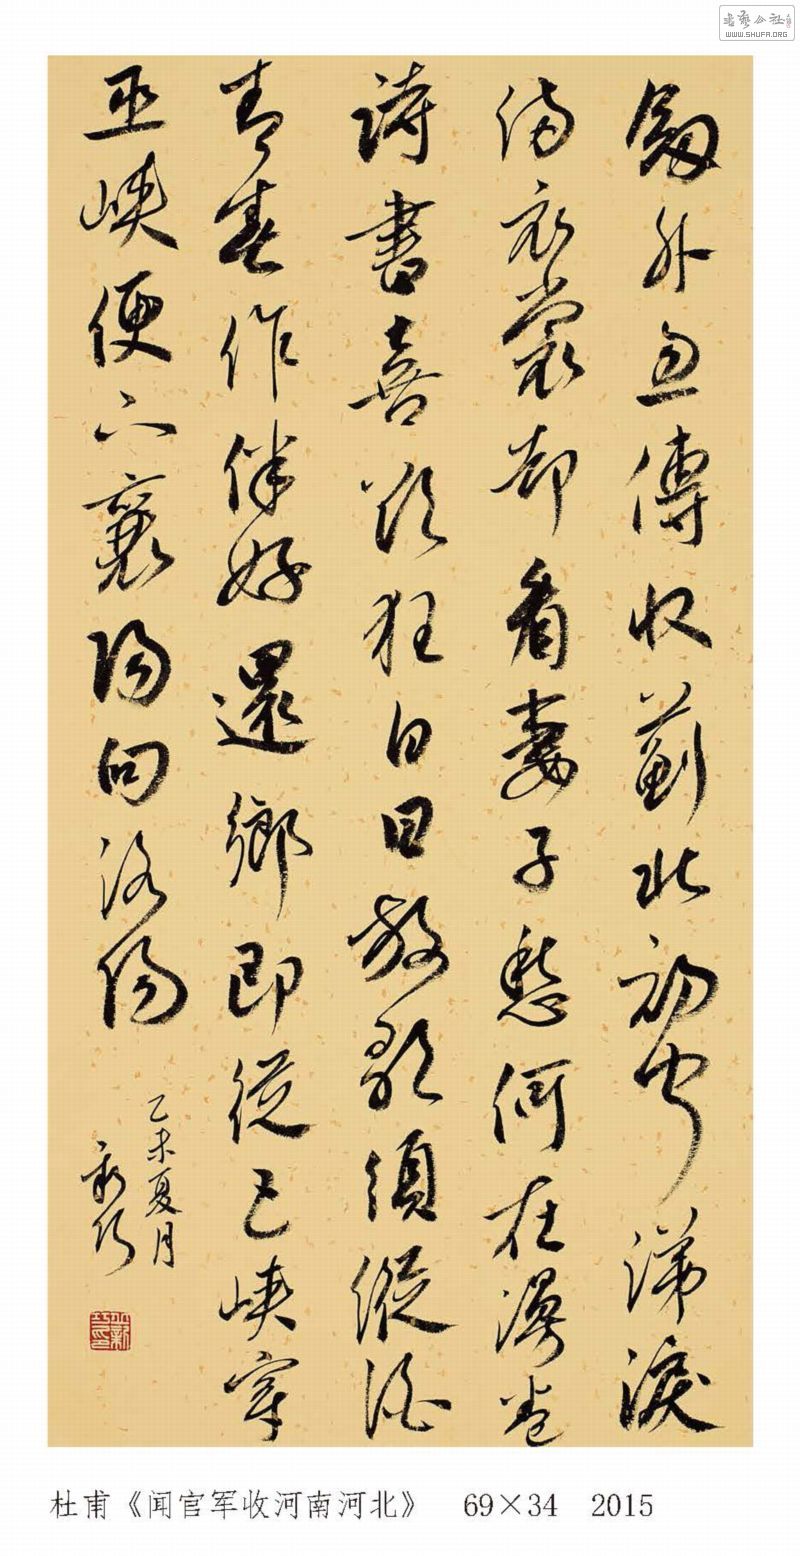 書藝公社
WWW.SHUFA.ORG
劍外忽傳收薊北初聞涕淚
滿衣裳却看妻子愁何在漫卷
詩書喜欲狂白日放歌須縱酒
青春作伴好還鄉即從巴峽穿
巫峽便下襄陽向洛陽
乙未夏月
杜甫《闻官军收河南河北》 69×34 2015